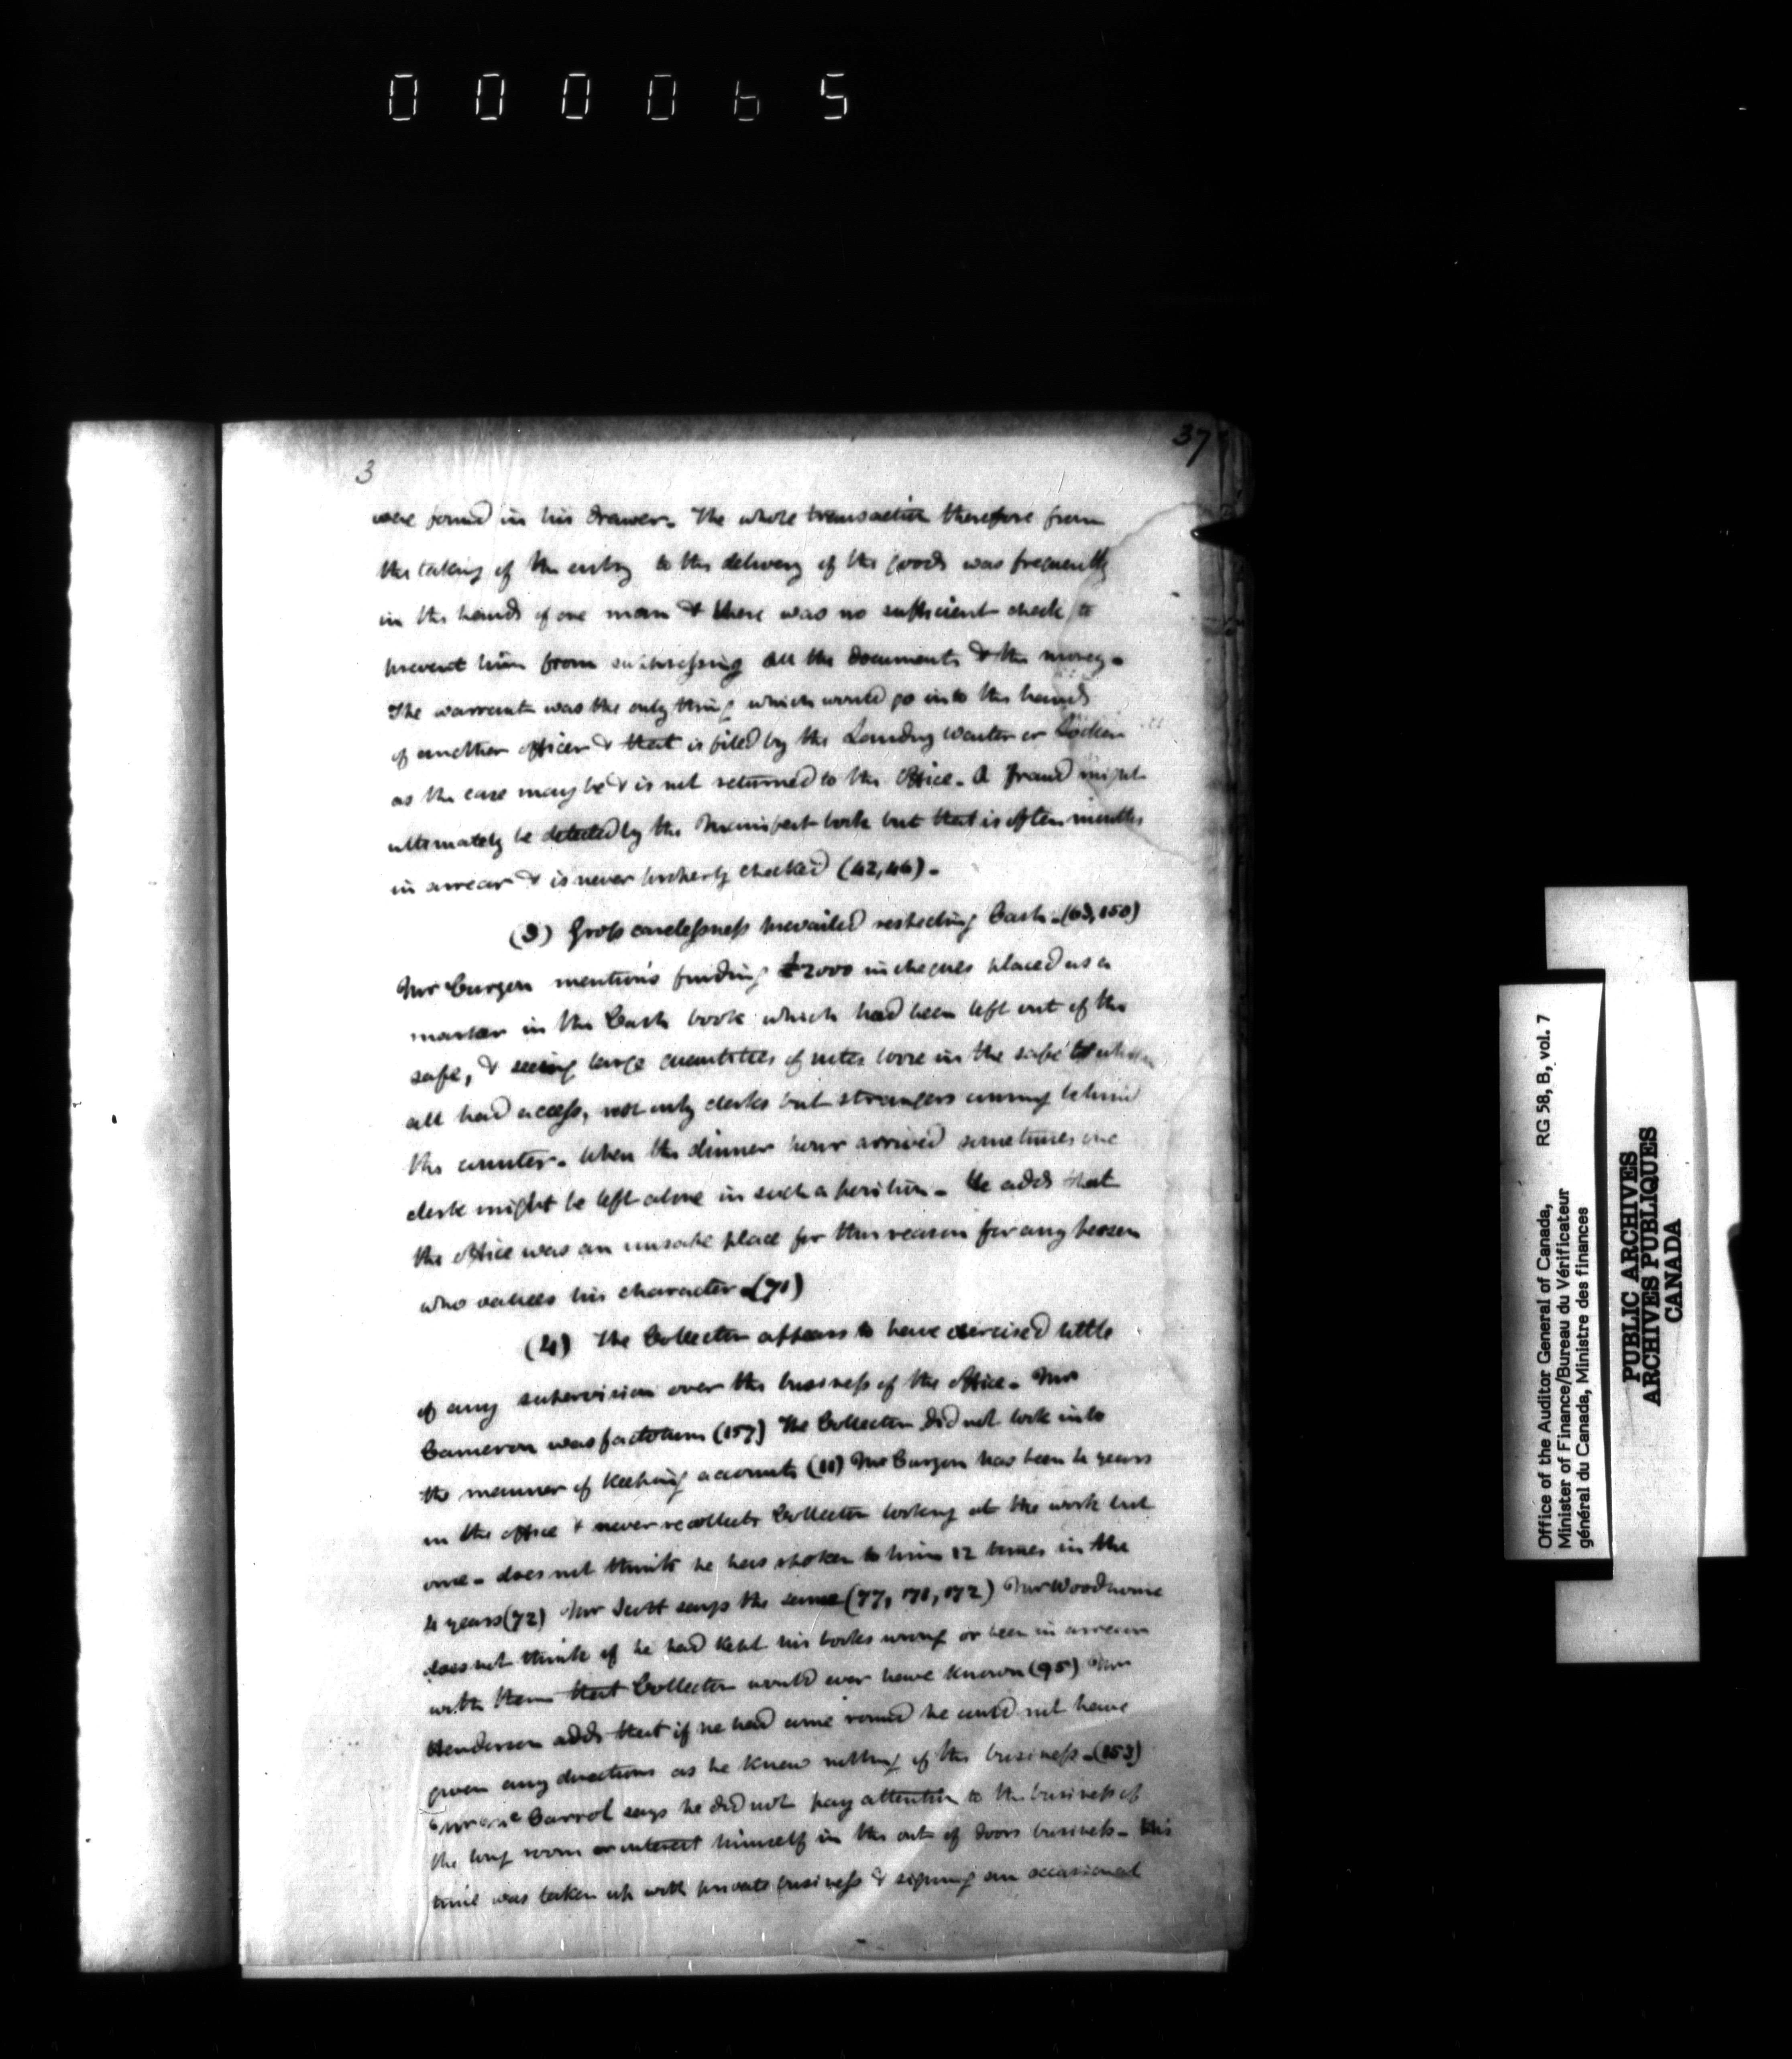 000065
37
3
were found in his drawer. The whole transaction therefore from
the taking of the entry to the delivery of the goods was frequently
in the hands of one man & there was no sufficient check to
prevent him from suppressing all the documents & the money.
The warrant was the only thing which would go into the hands
of another officer & that is filed by the Landing Waiter or Locker
as the case may be & is not returned to the Office. A fraud might
ultimately be detected by the Manifest book but that is often months
in arrear & is never properly checked (42,46).
(3) Gross carelessness prevailed respecting Cash. (63,150)
Mr Curzon mentions finding £2000 in cheques placed as a
marker in the Cash book which had been left out of the
safe, & seeing large quantities of notes loose in the safe to which
all had access, not only clerks but strangers coming behind
the counter. When the dinner hour arrived sometimes one
clerk might be left alone in such a position. He adds that
the office was an unsafe place for this reason for any person
who values his character. (71)
(4) The Collector appears to have exercised little
of any supervision over the business of the office. Mr
Cameron was factotum (157) The Collector did not look into
the manner of keeping accounts (11) Mr Curzon has been 4 years
in the office & never recollects Collector looking at the work but
once. does not think he has spoken to him 12 times in the
4 years (72) Mr Scott says the same (77, 171, 172) Mr Woodhouse
does not think if he had kept his books wrong or been in arrear
with them that Collector would ever have known (95) Mr
Henderson adds that if he had come round he could not have
given any directions as he knew nothing of the business. (153)
Carrol says he did not pay attention to the business of
the long room or interest himself in the out of doors business. His
time was taken up with private business & signing an occasional
Office of the Auditor General of Canada, RG 58, B, vol. 7
Minister of Finance/Bureau du Vérificateur
général du Canada, Ministre des finances
PUBLIC ARCHIVES
ARCHIVES PUBLIQUES
CANADA